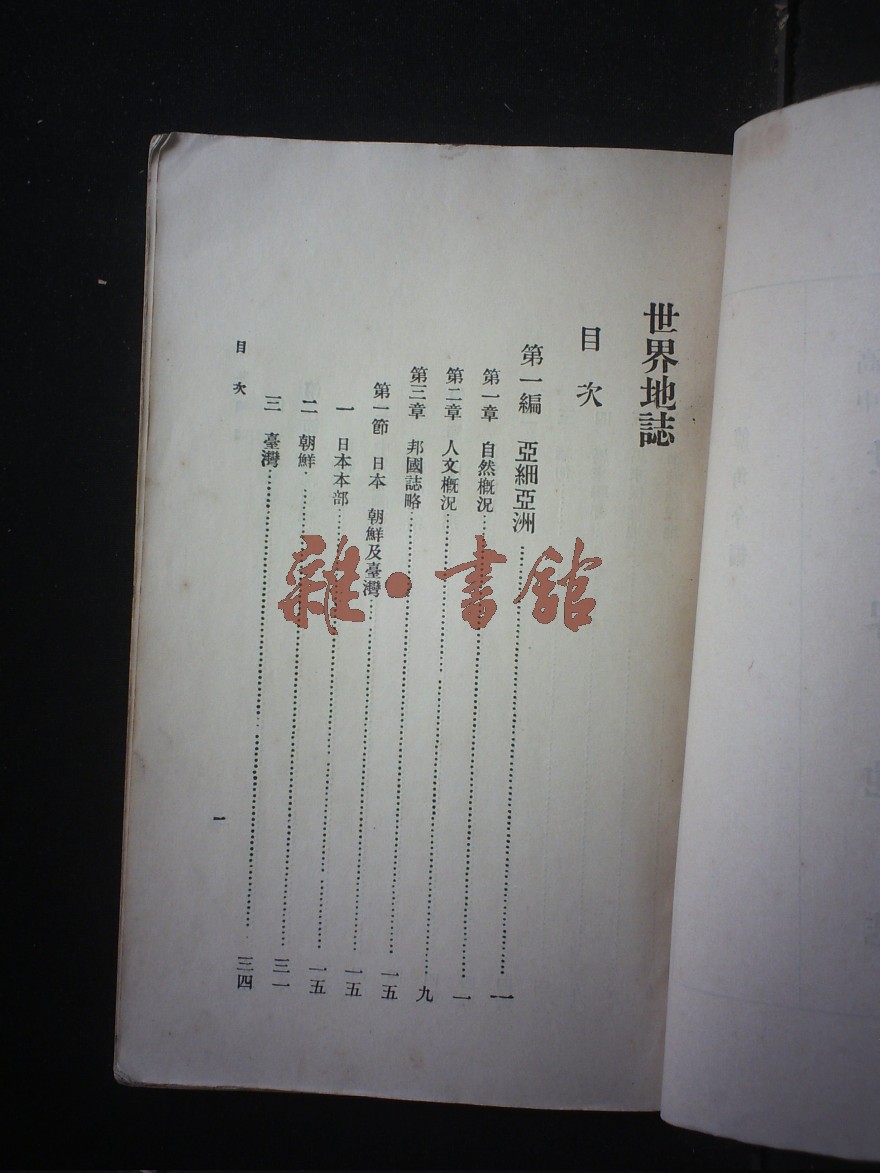 世界地誌
目次
第一編 亞細亞洲……一
第一章 自然概況……一
第二章 人文概況……九
第三章 邦國誌略……一五
第一節 日本 朝鮮及臺灣……一五
一 日本本部……一五
二 朝鮮……三一
三 臺灣……三四
目次
一
雜·書館